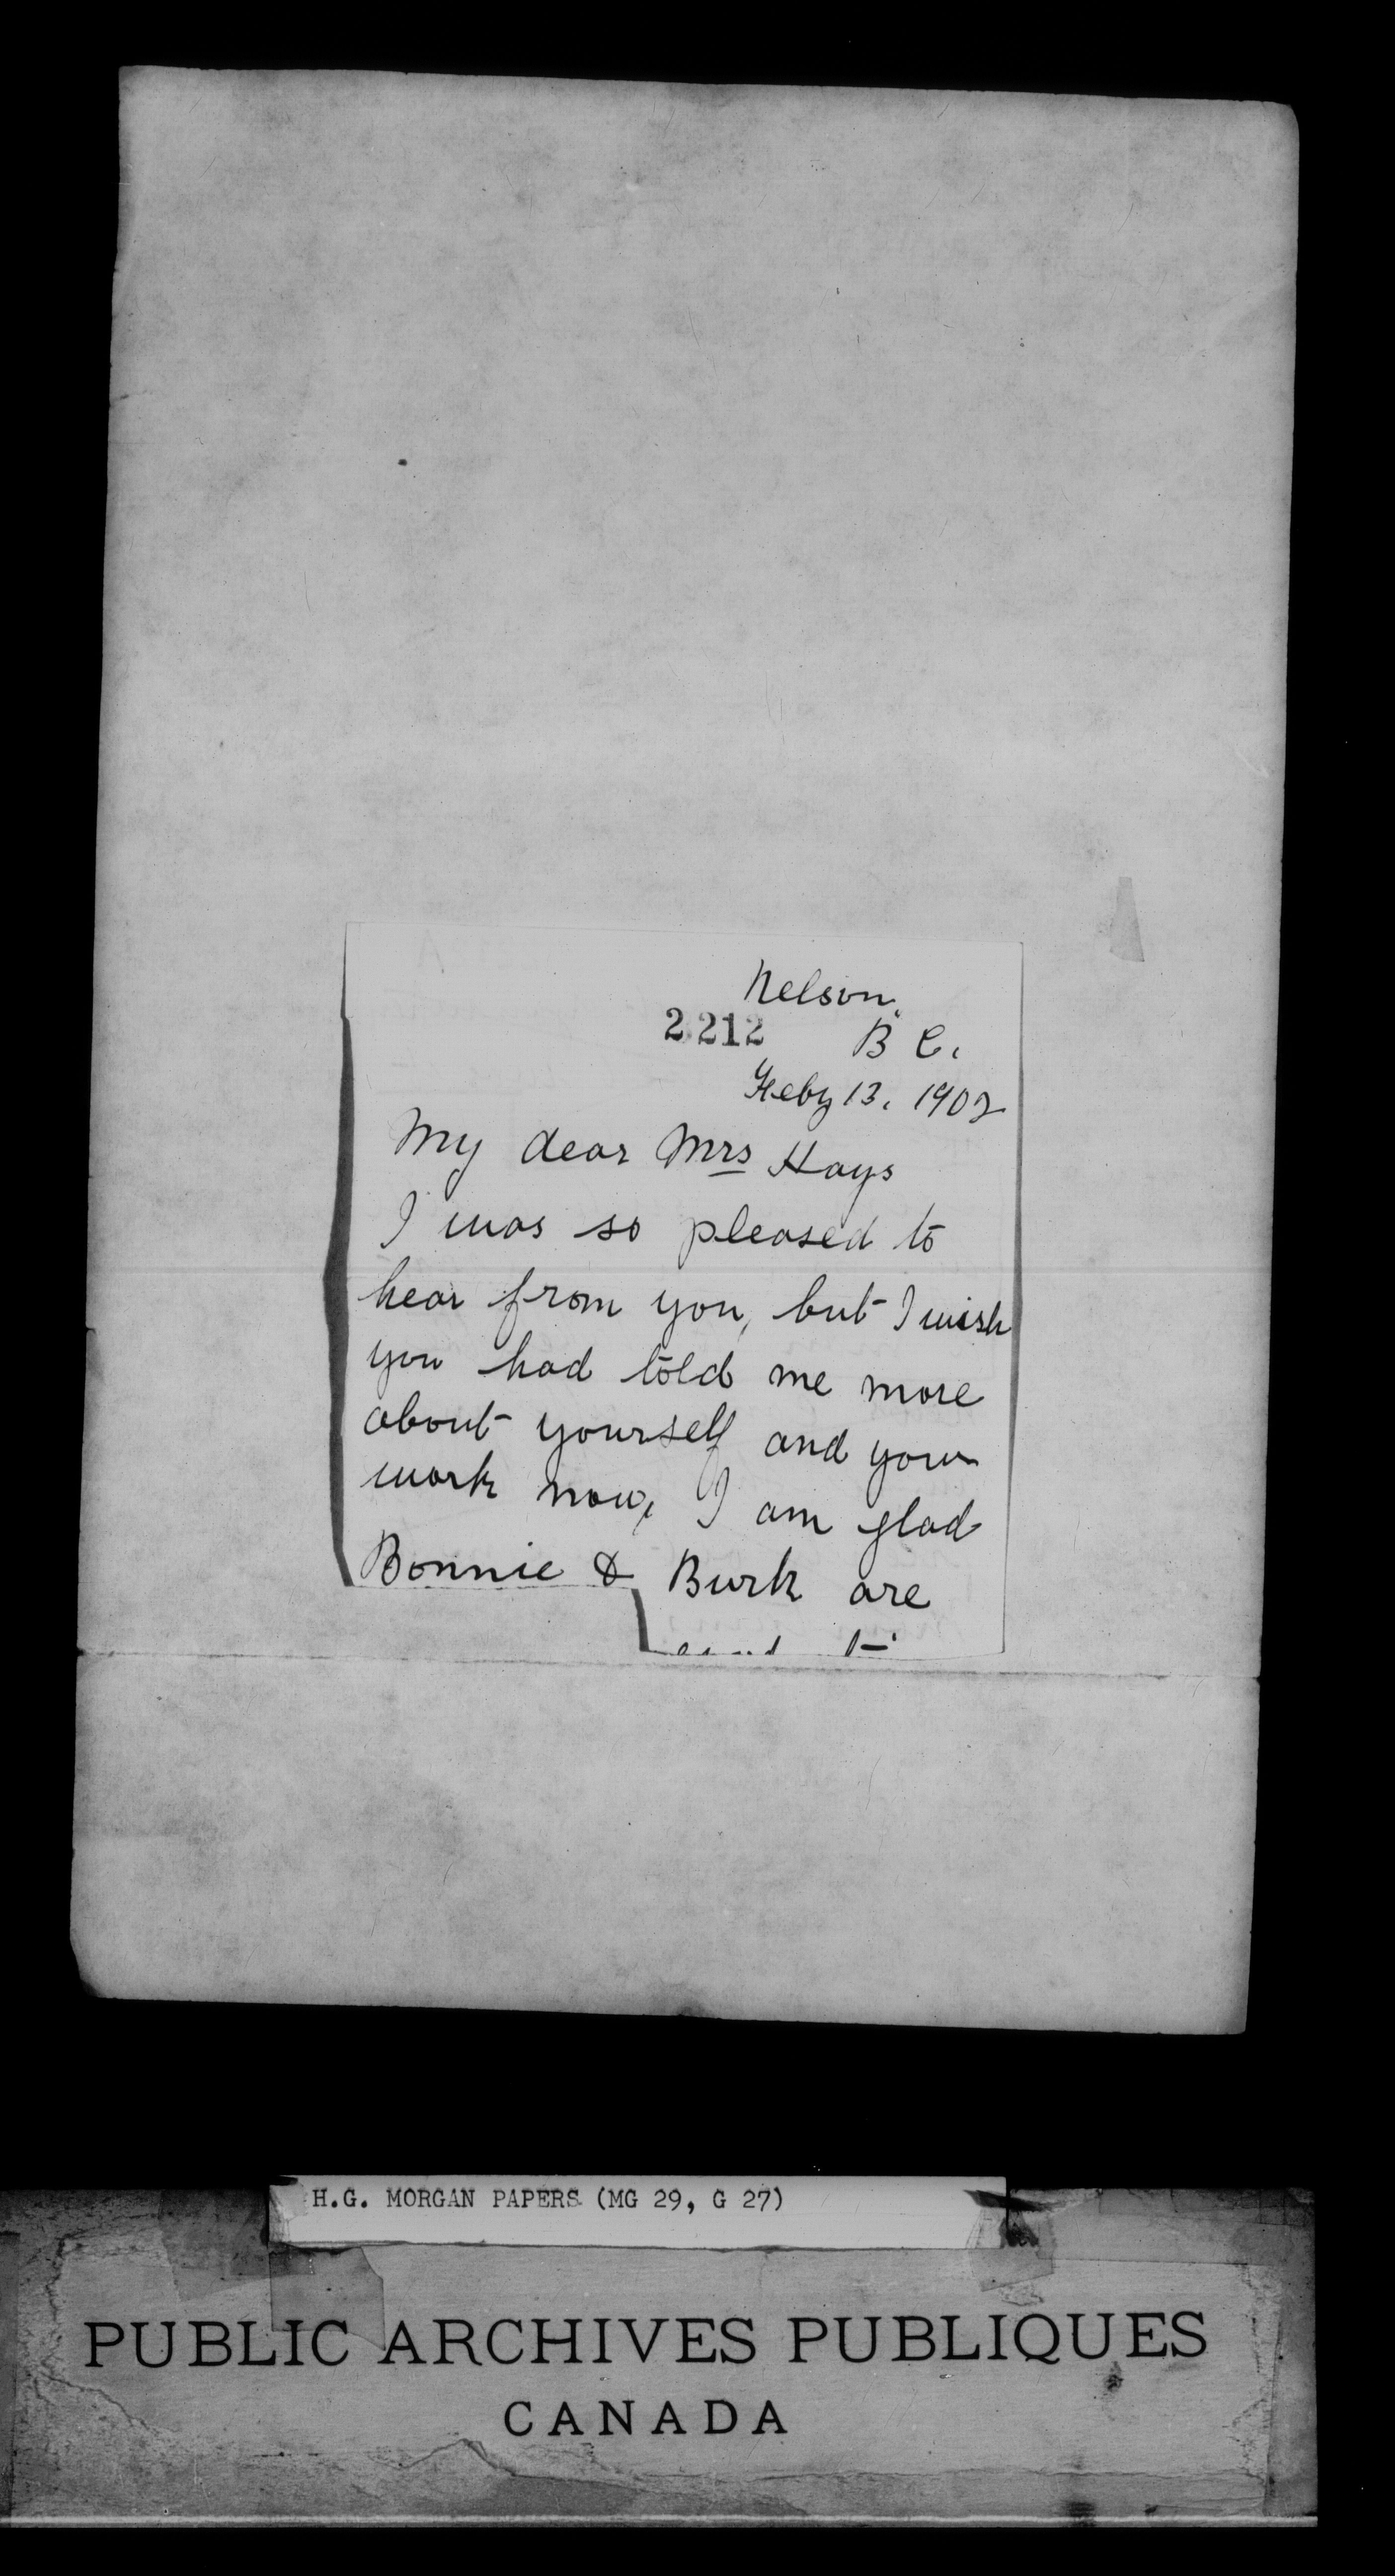 Nelson.
2212
B C.
Feby 13. 1902
My dear Mrs Hays
I was so pleased to
hear from you, but I wish
you had told me more
about yourself and your
work now, I am glad
Bonnie & Burk are
H.G. MORGAN PAPERS (MG 29, G 27)
PUBLIC ARCHIVES PUBLIQUES
CANADA